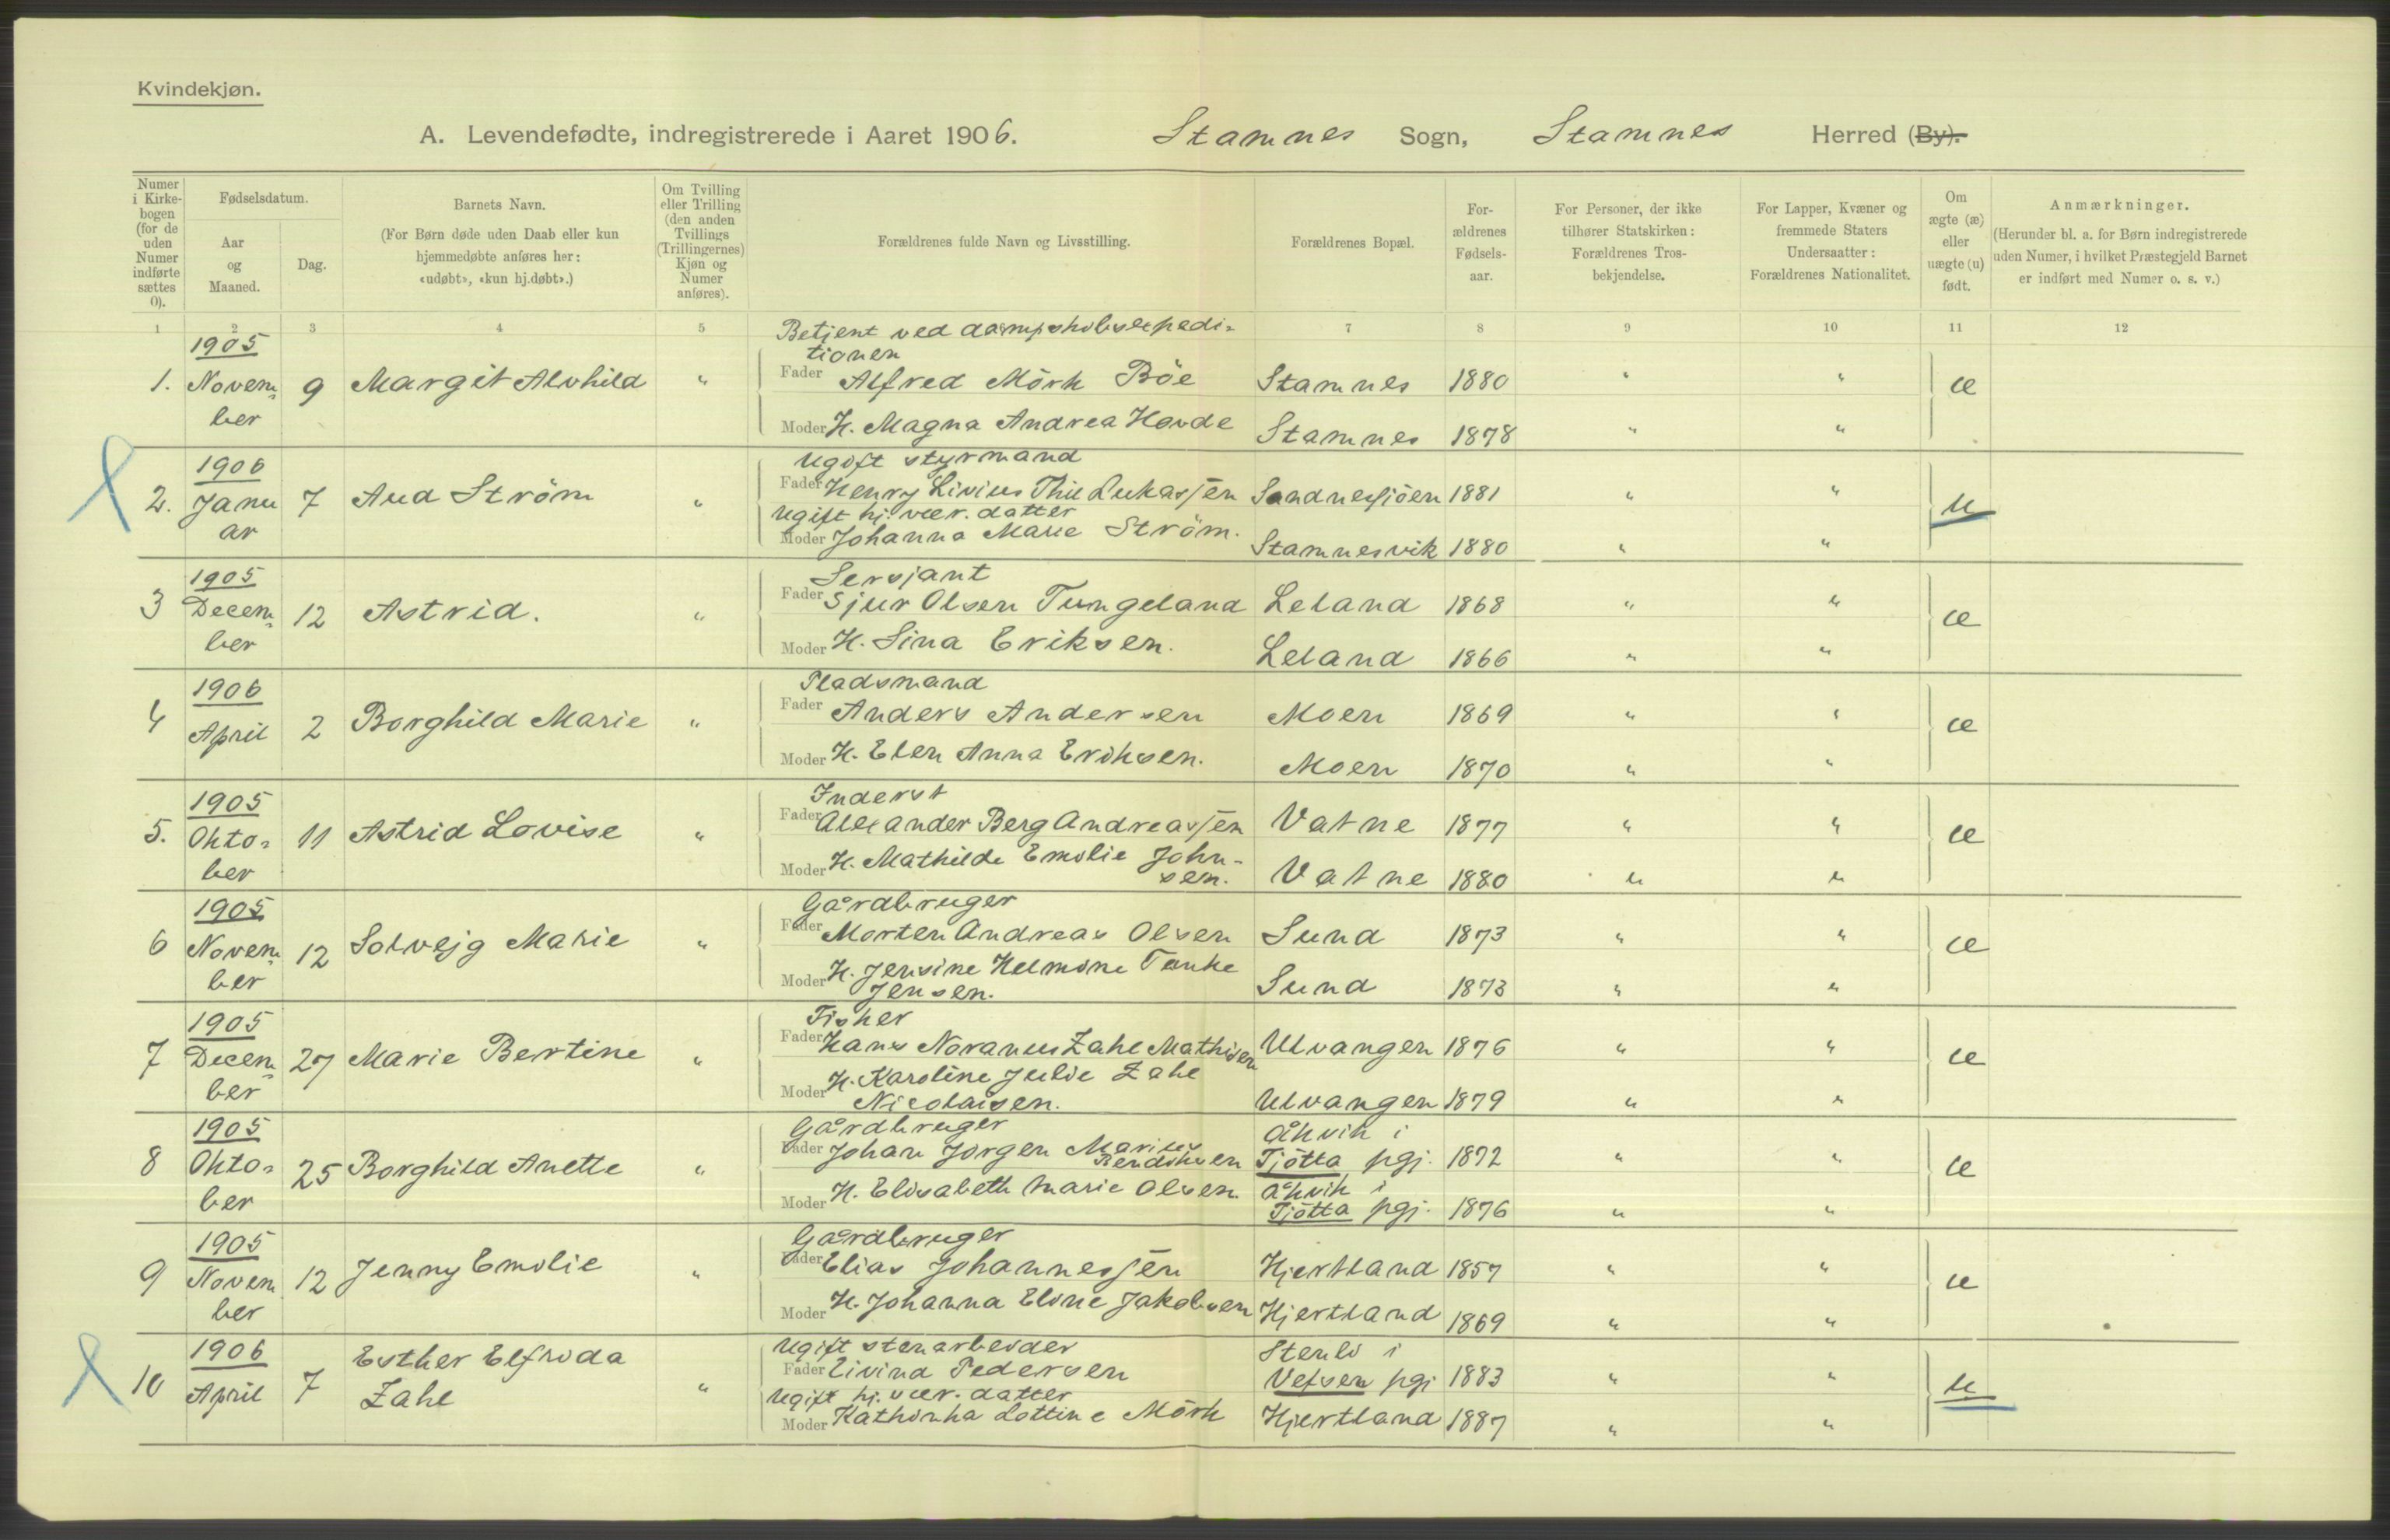 Kvindekjøn.
A. Levendefødte, indregistrerede i Aaret 1906. Stamnes Sogn, Stamnes Herred (By).
Numer i Kirkebogen (for de uden Numer indførte sættes 0).
Fødselsdatum.
Aar og Maaned.
Dag.
Barnets Navn.
(For Børn døde uden Daab eller kun hjemmedøbte anføres her: «udøbt», «kun hj.døbt».)
Om Tvilling eller Trilling (den anden Tvillings (Trillingernes) Kjøn og Numer anføres).
Forældrenes fulde Navn og Livsstilling.
Forældrenes Bopæl.
For-ældrenes Fødsels-aar.
For Personer, der ikke tilhører Statskirken: Forældrenes Tros-bekjendelse.
For Lapper, Kvæner og fremmede Staters Undersaatter: Forældrenes Nationalitet.
Om ægte (æ) eller uægte (u) født.
Anmærkninger.
(Herunder bl. a. for Børn indregistrerede uden Numer, i hvilket Præstegjeld Barnet er indført med Numer o. s. v.)
1 2 3 4 5 7 8 9 10 11 12
Betjent ved dampskibsexpedi-
1905 tionen
1. Novem- 9 Margit Alvhild " Fader Alfred Mörk Böe Stamnes 1880 " " æ
ber Moder H. Magna Andrea Hovde Stamnes 1878 " "
1906 Ugift styrmand
2. Janu 7 Aud Ström " Fader Henry Livius Thie Lukassen Sandnessjöen 1881 " " u
ar Ugift hj. vær. datter
Moder Johanna Marie Ström. Stamnesvik 1880 " "
1905 Sersjant
3 Decem- 12 Astrid. " Fader Sjur Olsen Tungeland Leland 1868 " " æ
ber Moder H. Sina Eriksen. Leland 1866 " "
1906 Pladsmand
4 April 2 Borghild Marie " Fader Anders Andersen Moen 1869 " " æ
Moder H. Elen Anna Eriksen. Moen 1870 " "
1905 Inderst
5. Okto- 11 Astrid Lovise " Fader Alexander Berg Andreassen Vatne 1877 " " æ
ber Moder H. Mathilde Emilie John-
sen. Vatne 1880 " "
1905 Gårdbruger
6 Novem- 12 Solvejg Marie " Fader Morten Andreas Olsen Sund 1873 " " æ
ber Moder H. Jensine Helmine Tanke
Jensen. Sund 1873 " "
1905 Fisker
7 Decem- 27 Marie Bertine " Fader Hans Noranus Zahl Mathisen Ulvangen 1876 " " æ
ber Moder H. Karoline Julie Zahl
Nicolaisen. Ulvangen 1879 " "
1905 Gårdbruger Åkvik i
8 Okto- 25 Borghild Anette " Fader Johan Jörgen Marius
Bendiksen Tjötta pgj. 1872 " " æ
ber Moder H. Elisabeth Marie Olsen. Åkvik i
Tjötta pgj. 1876 " "
1905 Gårdbruger
9 Novem 12 Jenny Emilie " Fader Elias Johannessen Hjertland 1857 " " æ
ber Moder H. Johanna Eline Jakobsen Hjertland 1869 " "
1906 Esther Elfrida Ugift stenarbeider Stenli i
10 April 7 Zahl " Fader Eivind Pedersen Vefsen pgj 1883 " " u
Ugift hj. vær. datter
Moder Kathinka Lottine Mörk Hjertland 1887 " "